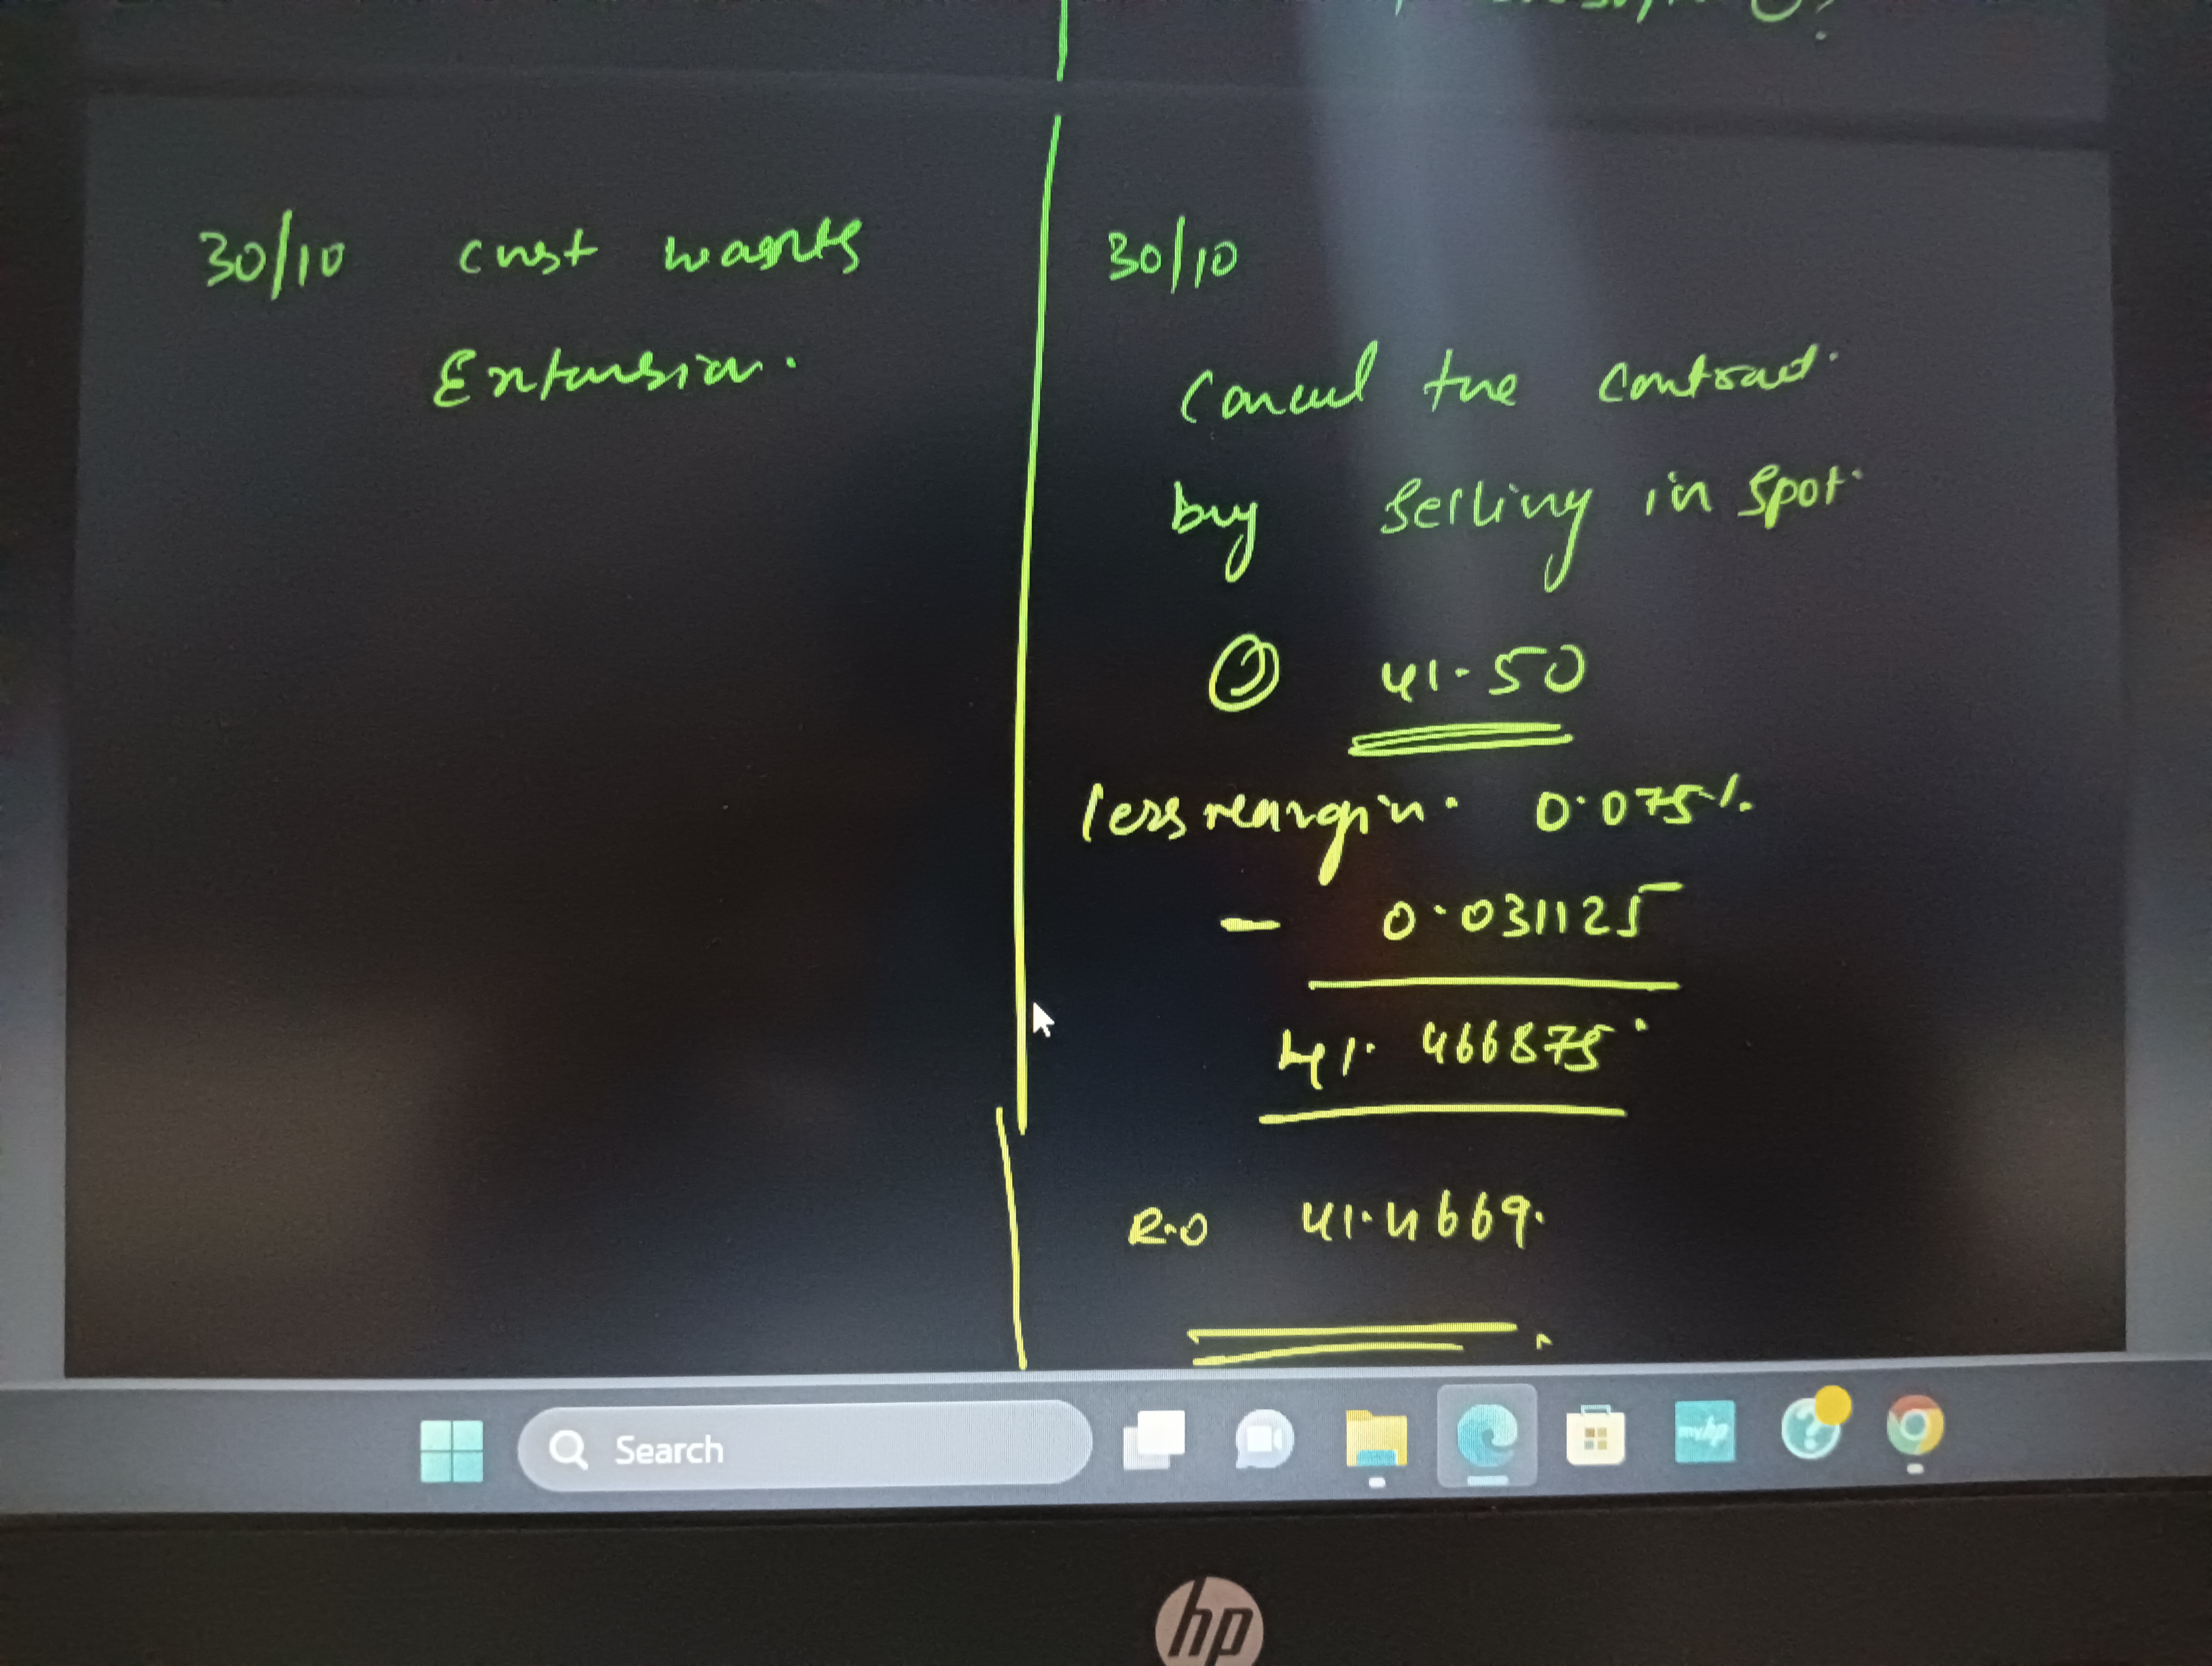 30/10 cust wants
Extension.
30/10
Cancel the contract.
buy selling in spot.
@ 41.50
less margin. 0.075%.
- 0.031125
41.466875
R.O 41.4669.
Search
myhp
hp